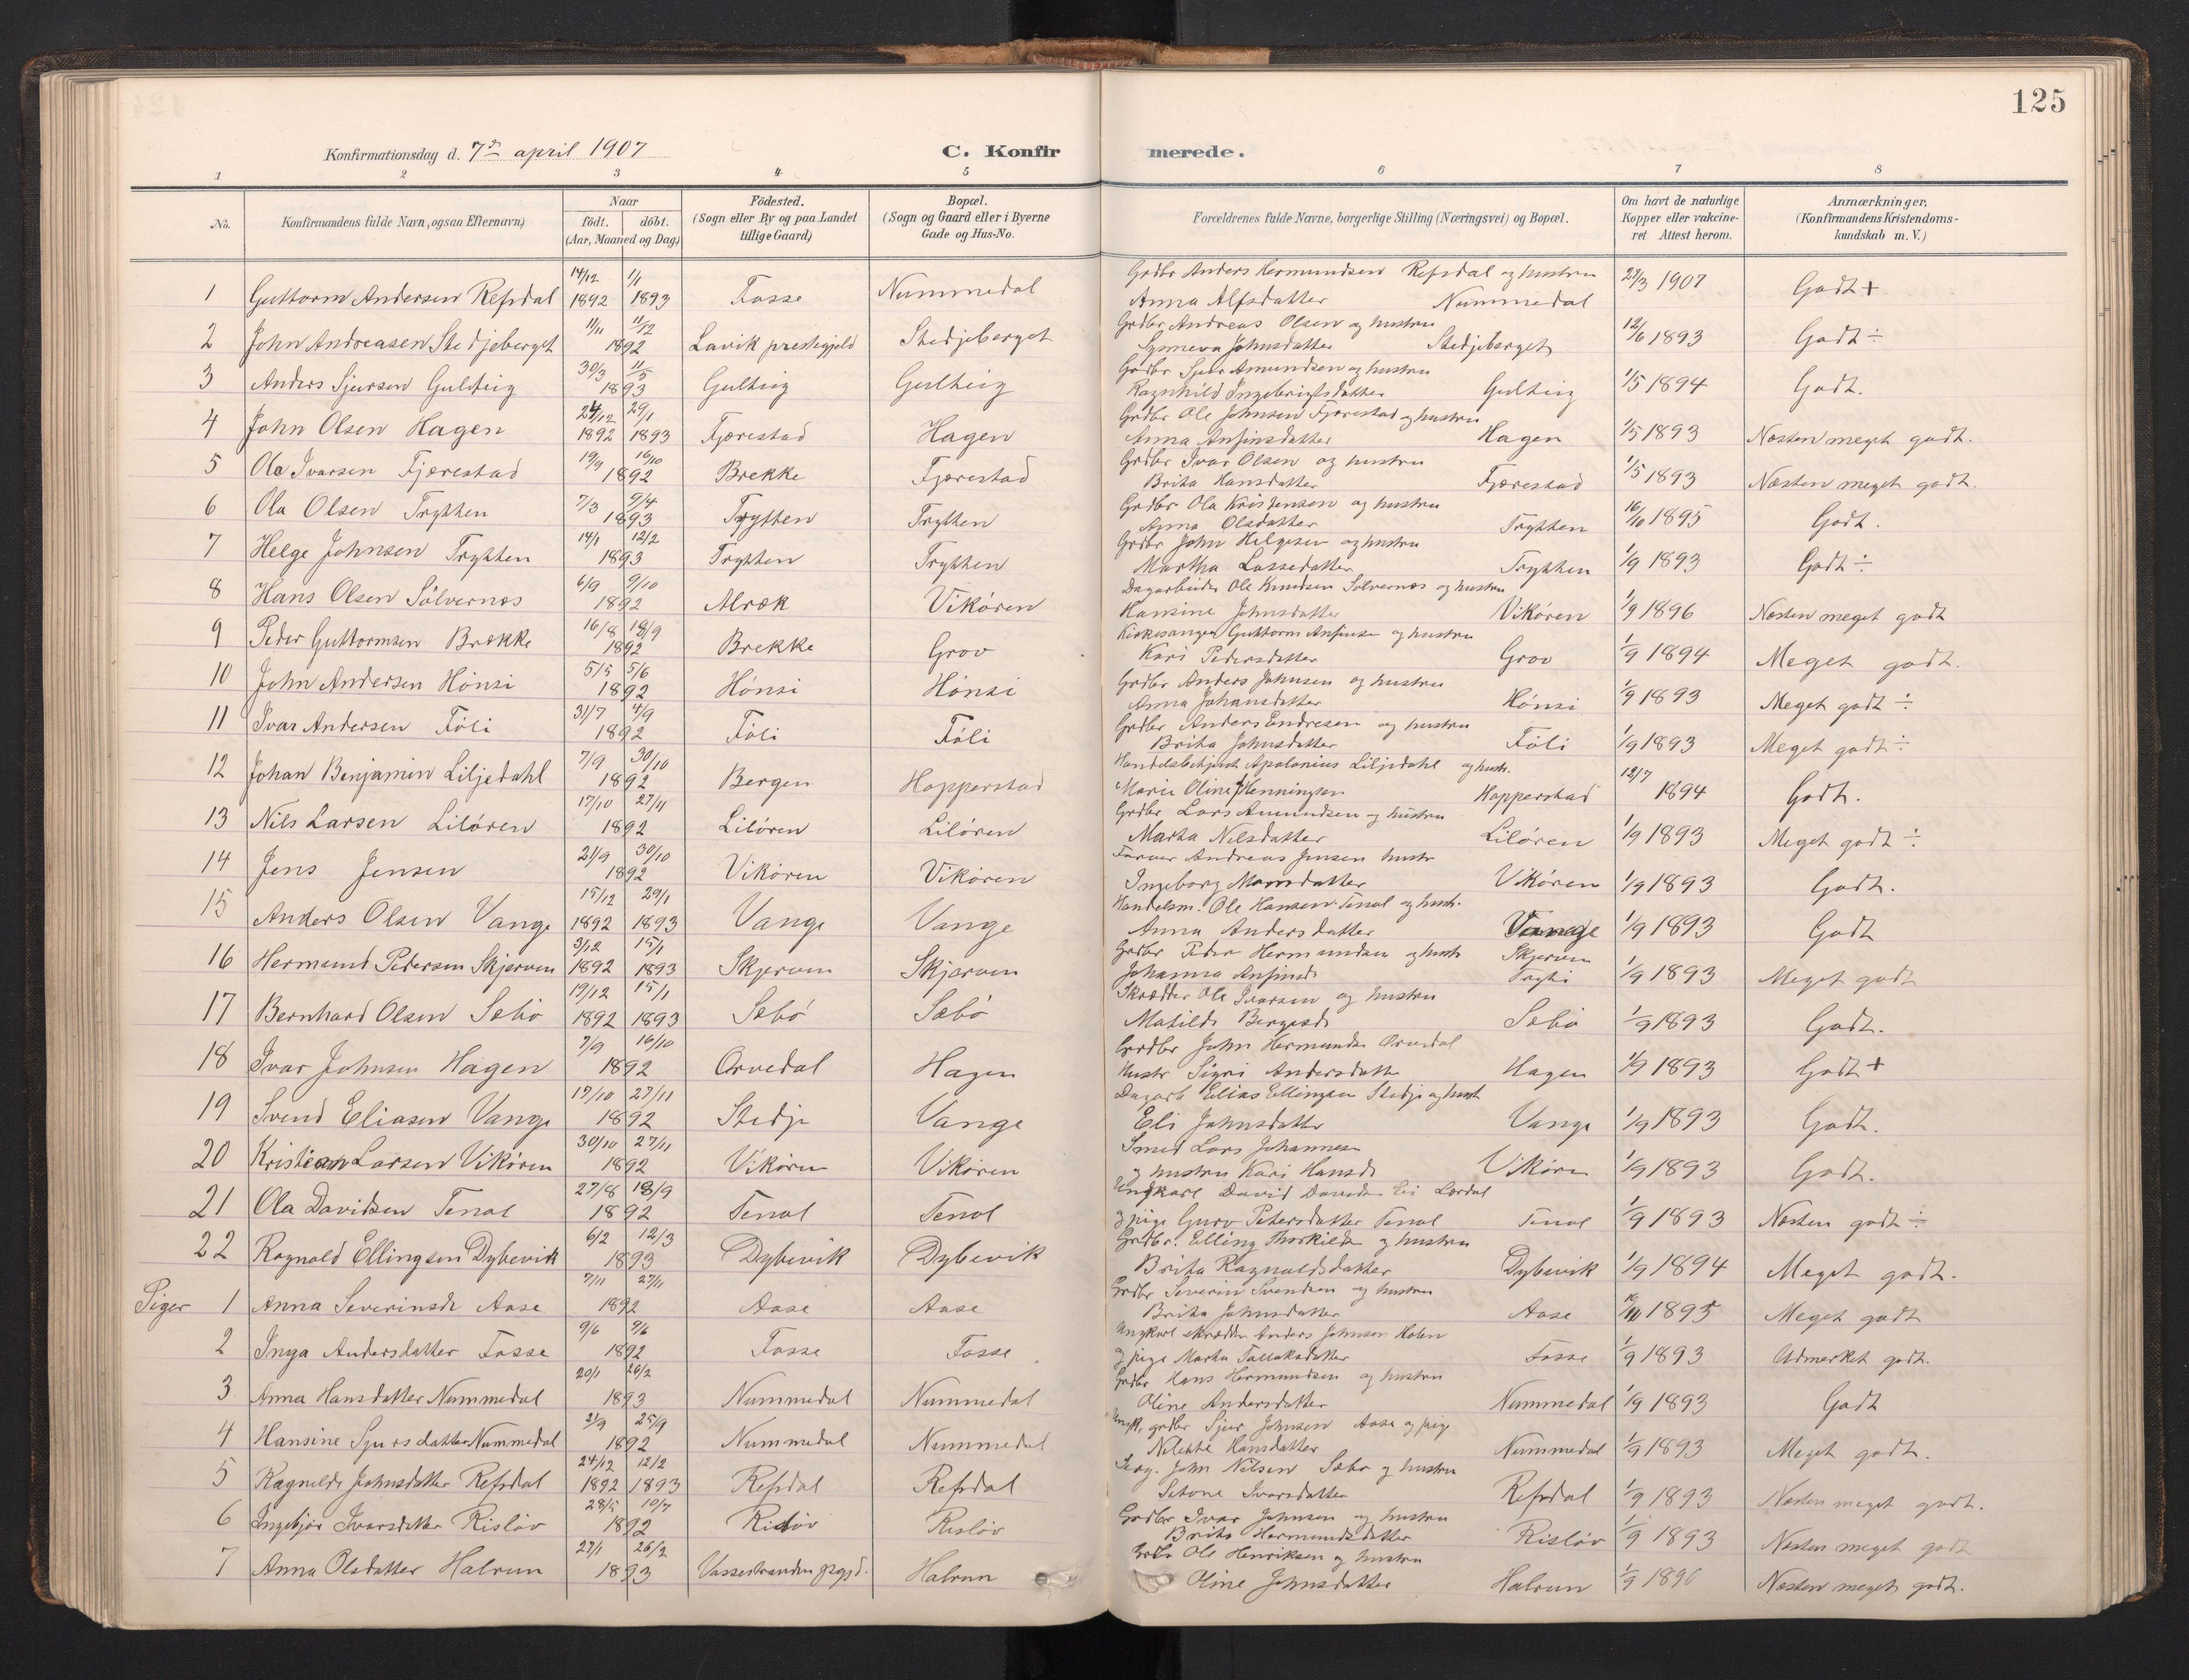 125
Konfirmationsdag d. 7de april 1907
C. Konfirmerede.
1 2 3 4 5 6 7 8
No.
Konfirmandens fulde Navn, ogsaa Efternavn)
Naar
født. døbt.
(Aar, Maaned og Dag)
Fødested.
(Sogn eller By og paa Landet
tillige Gaard)
Bopæl.
(Sogn og Gaard eller i Byerne
Gade og Hus-No.
Forældrenes fulde Navne, borgerlige Stilling (Næringsvei) og Bopæl.
Om havt de naturlige
Kopper eller vakcine-
ret Attest herom.
Anmærkninger.
(Konfirmandens Kristendoms-
kundskab m. V.)
1 Guttorm Andersen Refsdal 14/12 1892 1/1 1893 Fosse Nummedal Grdbr Anders Hermundsen Refsdal og hustru Anna Alfsdatter Nummedal 27/3 1907 Godt +
2 John Andreasen Stedjeberget 11/11 11/12 1892 Lavik prestegjeld Stedjeberget Grdbr Andreas Olsen og hustru Synneva Johnsdatter Stedjeberget 12/6 1893 Godt ÷
3 Anders Sjursen Gulteig 30/3 11/5 1893 Gulteig Gulteig Grdbr Sjur Amundsen og hustru Ragnhild Ingebrigtsdatter Gulteig 1/5 1894 Godt.
4 John Olsen Hagen 24/12 1892 29/1 1893 Fjærestad Hagen Grdbr Ole Johnsen Fjærestad og hustru Anna Anfinsdatter Hagen 1/5 1893 Næsten meget godt.
5 Ola Ivarsen Fjærestad 19/9 16/10 1892 Brekke Fjærestad Grdbr Ivar Olsen og hustru Brita Hansdatter Fjærestad 1/5 1893 Næsten meget godt.
6 Ola Olsen Trytten 7/3 9/4 1893 Trytten Trytten Grdbr Ola Kristensen og hustru Anna Olsdatter Trytten 16/10 1895 Godt.
7 Helge Johnsen Trytten 14/1 12/2 1893 Trytten Trytten Grdbr John Helgesen og hustru Martha Lassedatter Trytten 1/9 1893 Godt ÷
8 Hans Olsen Sølvernæs 6/9 9/10 1892 Alræk Vikøren Dagarbeider Ole Knudsen Sølvernæs og hustru Hansine Johnsdatter Vikøren 1/9 1896 Næsten meget godt
9 Peder Guttormsen Brække 16/8 18/9 1892 Brekke Grov Kirkesanger Guttorm Anfinsen og hustru Kari Pedersdatter Grov 1/9 1894 Meget godt.
10 John Andersen Hønsi 5/5 5/6 1892 Hønsi Hønsi Grdbr Anders Johnsen og hustru Anna Johansdatter Hønsi 1/9 1893 Meget godt ÷
11 Ivar Andersen Føli 31/7 4/9 1892 Føli Føli Grdbr Anders Endresen og hustru Brita Johnsdatter Føli 1/9 1893 Meget godt ÷
12 Johan Benjamin Liljedahl 7/9 30/10 1892 Bergen Hopperstad Handelsbetjent Apolonius Liljedahl og hustr. Marie Oline Henningsen Hopperstad 12/7 1894 Godt.
13 Nils Larsen Liløren 17/10 27/11 1892 Liløren Liløren Grdbr Lars Amundsen og hustru Marta Nilsdatter Liløren 1/9 1893 Meget godt ÷
14 Jens Jensen 21/9 30/10 1892 Vikøren Vikøren Farver Andreas Jensen hustr Ingeborg Monsdatter Vikøren 1/9 1893 Godt.
15 Anders Olsen Vange 15/12 1892 29/1 1893 Vange Vange Handelsm. Ole Hansen Tenol og hustr. Anna Andersdatter Vange 1/9 1893 Godt
16 Hermund Pedersen Skjerven 3/12 1892 15/1 1893 Skjerven Skjerven Grdbr Peder Hermundsen og hustr Skjerven Johanna Anfinsd 1/9 1893 Meget godt
17 Bernhard Olsen Sæbø 19/12 1892 15/1 1893 Sæbø Sæbø Skrædder Ole Ivarsen og hustru Matilde Børgesd Sæbø 1/9 1893 Godt.
18 Ivar Johnsen Hagen 7/9 16/10 1892 Orvedal Hagen Grdbr John Hermundsen Orvedal Hustr Sigri Andersdatter Hagen 1/9 1893 Godt +
19 Svend Eliasen Vange 17/10 27/11 1892 Stedje Vange Dagarb Elias Ellingsen Stedje og hustr Eli Johnsdatter Vange 1/9 1893 Godt.
20 Kristian Larsen Vikøren 30/10 27/11 1892 Vikøren Vikøren Smed Lars Johannesen og hustru Kari Hansd Vikøren 1/9 1893 Godt.
21 Ola Davidsen Tenol 27/8 18/9 1892 Tenol Tenol Ungkarl David Davidsen Lærdal og pige Guro Petersdatter Tenol Tenol 1/9 1893 Næsten godt ÷
22 Ragnald Ellingsen Dybevik 6/2 12/3 1893 Dybevik Dybevik Grdbr. Elling Thorkilds og hustru Brita Ragnaldsdatter Dybevik 1/9 1894 Meget godt.
Piger 1 Anna Severinsd Aase 7/11 27/11 1892 Aase Aase Grdbr Severin Svendsen og hustru Brita Johnsdatter Aase 1895 Meget godt
2 Inga Andersdatter Fosse 9/6 1892 Fosse Fosse Ungkarl skrædder Anders Johnsen Holen og pige Marta Tallaksdatter Fosse 1/9 1893 Udmerket godt.
3 Anna Hansdatter Nummedal 20/1 26/2 1893 Nummedal Nummedal Grdbr Hans Hermundsen og hustru Oline Andersdatter Nummedal 1/9 1893 Godt
4 Hansine Sjursdatter Nummedal 2/9 25/9 1892 Nummedal Nummedal Ungk. grdbr Sjur Johnsen Aase og pige Hansdatter Nummedal 1/9 1893 Meget godt.
5 Ragnilde Johnsdatter Refsdal 24/12 1892 12/2 1893 Refsdal Refsdal John Nilsen Sæbø og hustru Ivarsdatter Refsdal 1/9 1893 Næsten meget godt.
6 Ingebjør Ivarsdatter Risløv 28/5 10/7 1892 Risløv Risløv Grdbr Ivar Johnsen og hustru Brita Hermundsdatter Risløv 1/9 1893 Næsten meget godt
7 Anna Olsdatter Halrun 27/1 26/2 1893 Vassestranden prgjd. Halrun Grdbr Ole Henriksen og hustru Oline Johnsdatter Halrun 1/9 1896 Næsten meget godt.